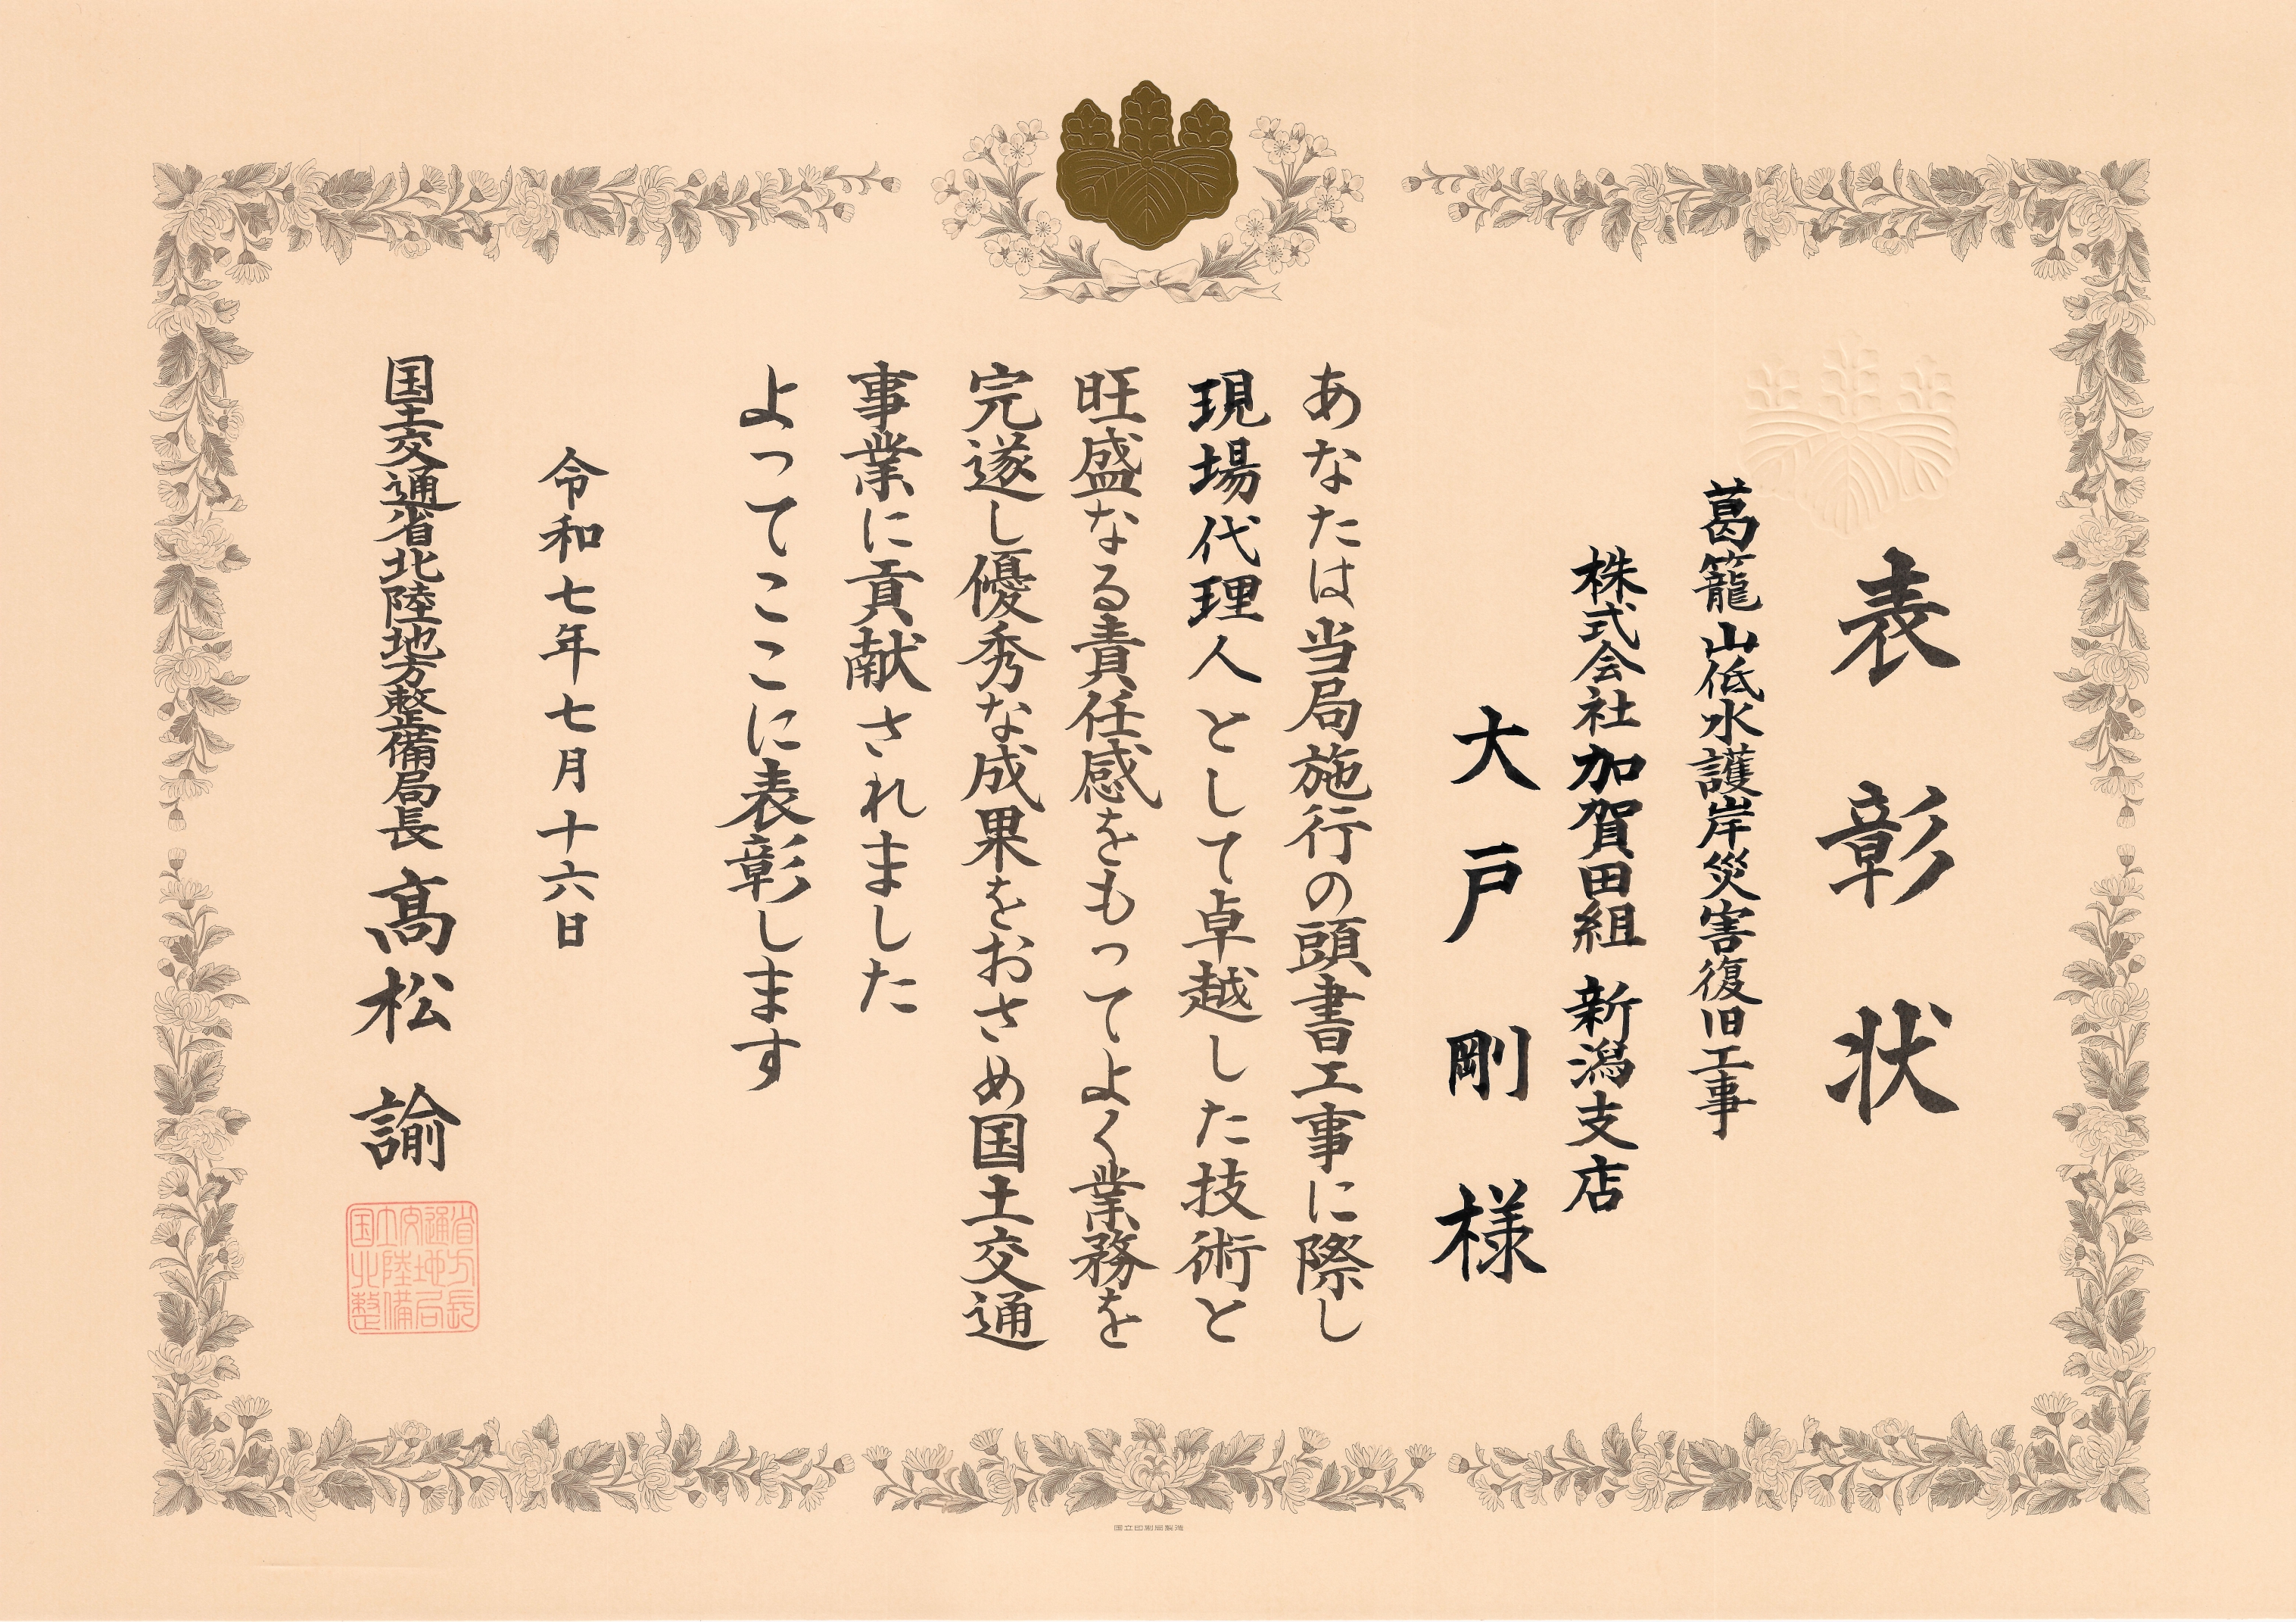 表彰状
葛籠山低水護岸災害復旧工事
株式会社加賀田組 新潟支店
大戸 剛 様
あなたは当局施行の頭書工事に際し
現場代理人として卓越した技術と
旺盛なる責任感をもってよく業務を
完遂し優秀な成果をおさめ国土交通
事業に貢献されました
よってここに表彰します
令和七年七月十六日
国土交通省北陸地方整備局長 髙松 諭
国立印刷局製造